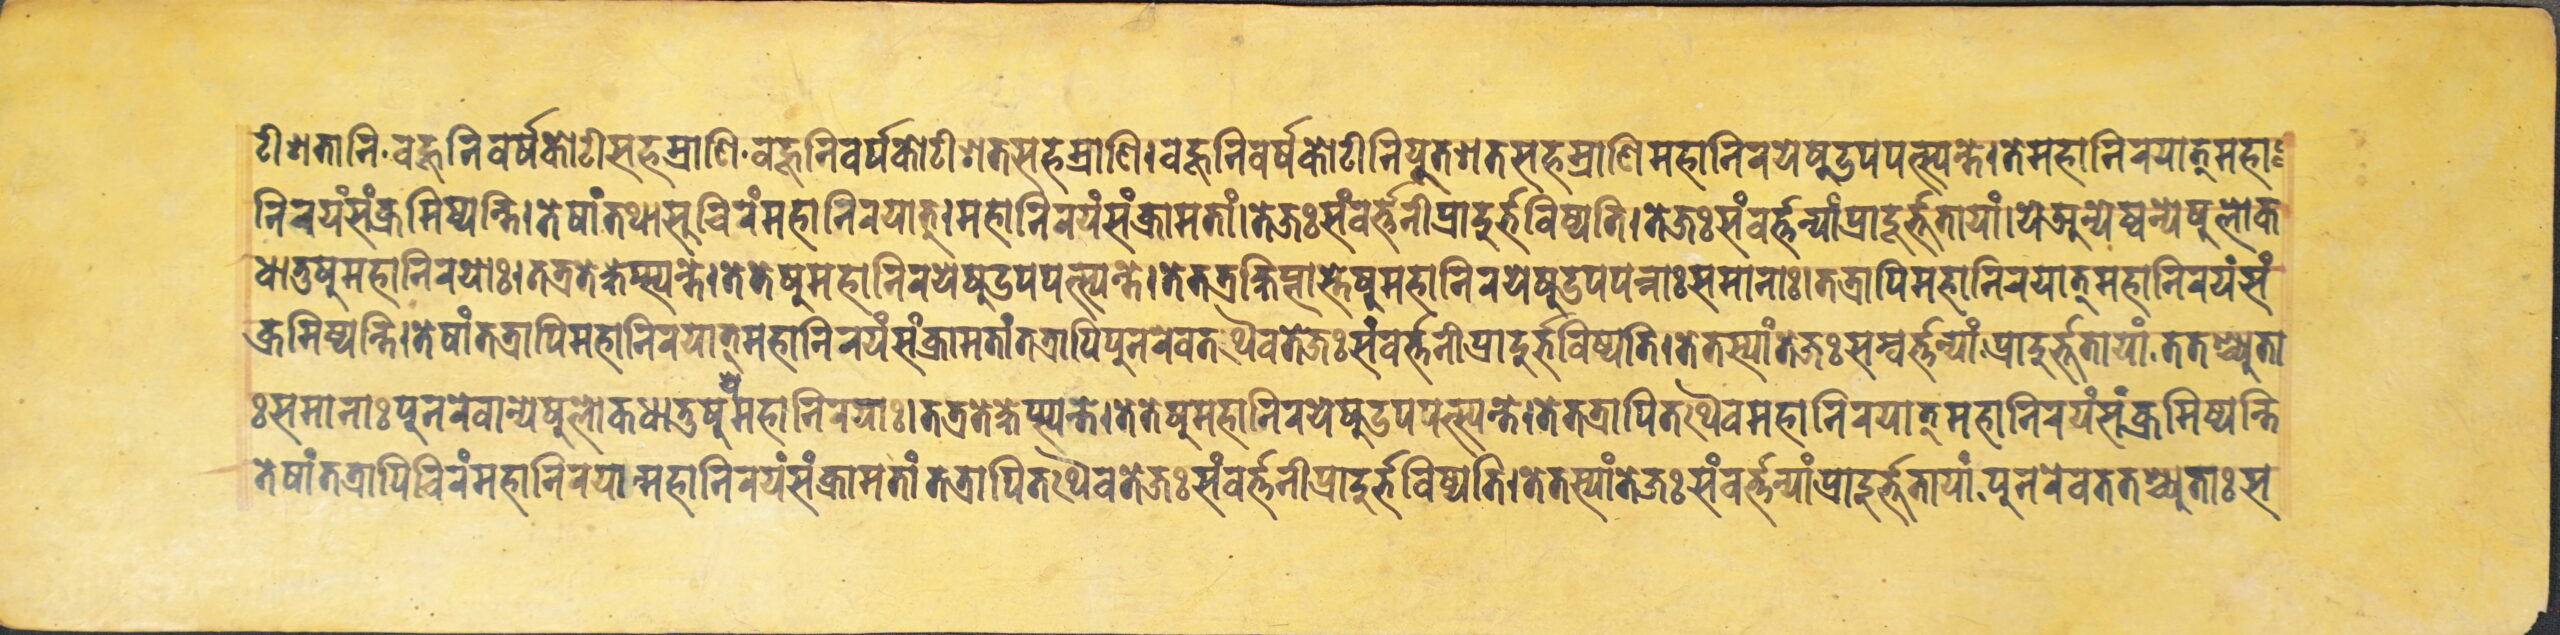 टीशतानि·वहूनिवर्षकोटीसहस्राणि·वहूनिवर्षकोटीशतसहस्राणि।वहूनिवर्षकोटीनियुतशतसहस्राणिमहानिरयेषूउपपत्स्यन्ते।तेमहानिरयात्महा
निरयंसंक्रमिष्यन्ति।तेषांतथासुचिरंमहानिरयात्।महानिरयंसंक्रामतां।तेजःसंवर्त्तनीप्रादुर्भविष्यति।तेजःसंवर्त्तन्यांप्रादूर्भूतायां।येअन्येष्वन्येषुलोक
धातुषुमहानिरयोः।तत्रतेक्षेप्स्यन्ते।तेतेषुमहानिरयेषूउपपत्स्यन्ते।तेतत्रक्षिप्तास्तेषुमहानिरयेषूउपपन्नाःसमानाः।तत्रापिमहानिरयात्महानिरयंसं
क्रमिष्यन्ति।तेषांतत्रापिमहानिरयात्महानिरयंसंक्रामतांतत्रापिपुनरेवतथैवतेजःसंवर्त्तनीप्रादुर्भविष्यति।तेतस्यांतेजःसम्वर्त्तन्यां·प्रादुर्भूतायां·ततश्च्युता
ःसमानाःपुनरेवान्येषुलोकधातुषुयेमहानिरयाः।तत्रतेक्षेप्स्यन्ते।तेतेषुमहानिरयेषूउपपत्स्यन्ते।तेतत्रापितथैवमहानिरयात्महानिरयंसंक्रमिष्यन्ति
तेषांतत्रापिचिरंमहानिरयान्महानिरयंसंक्रामतांतत्रापितथैवतेजःसंवर्त्तनीप्रादुर्भविष्यति।तेतस्यांतेजःसंवर्त्तन्यांप्रादूर्भूतायां·पुनरेवततश्च्युताःस